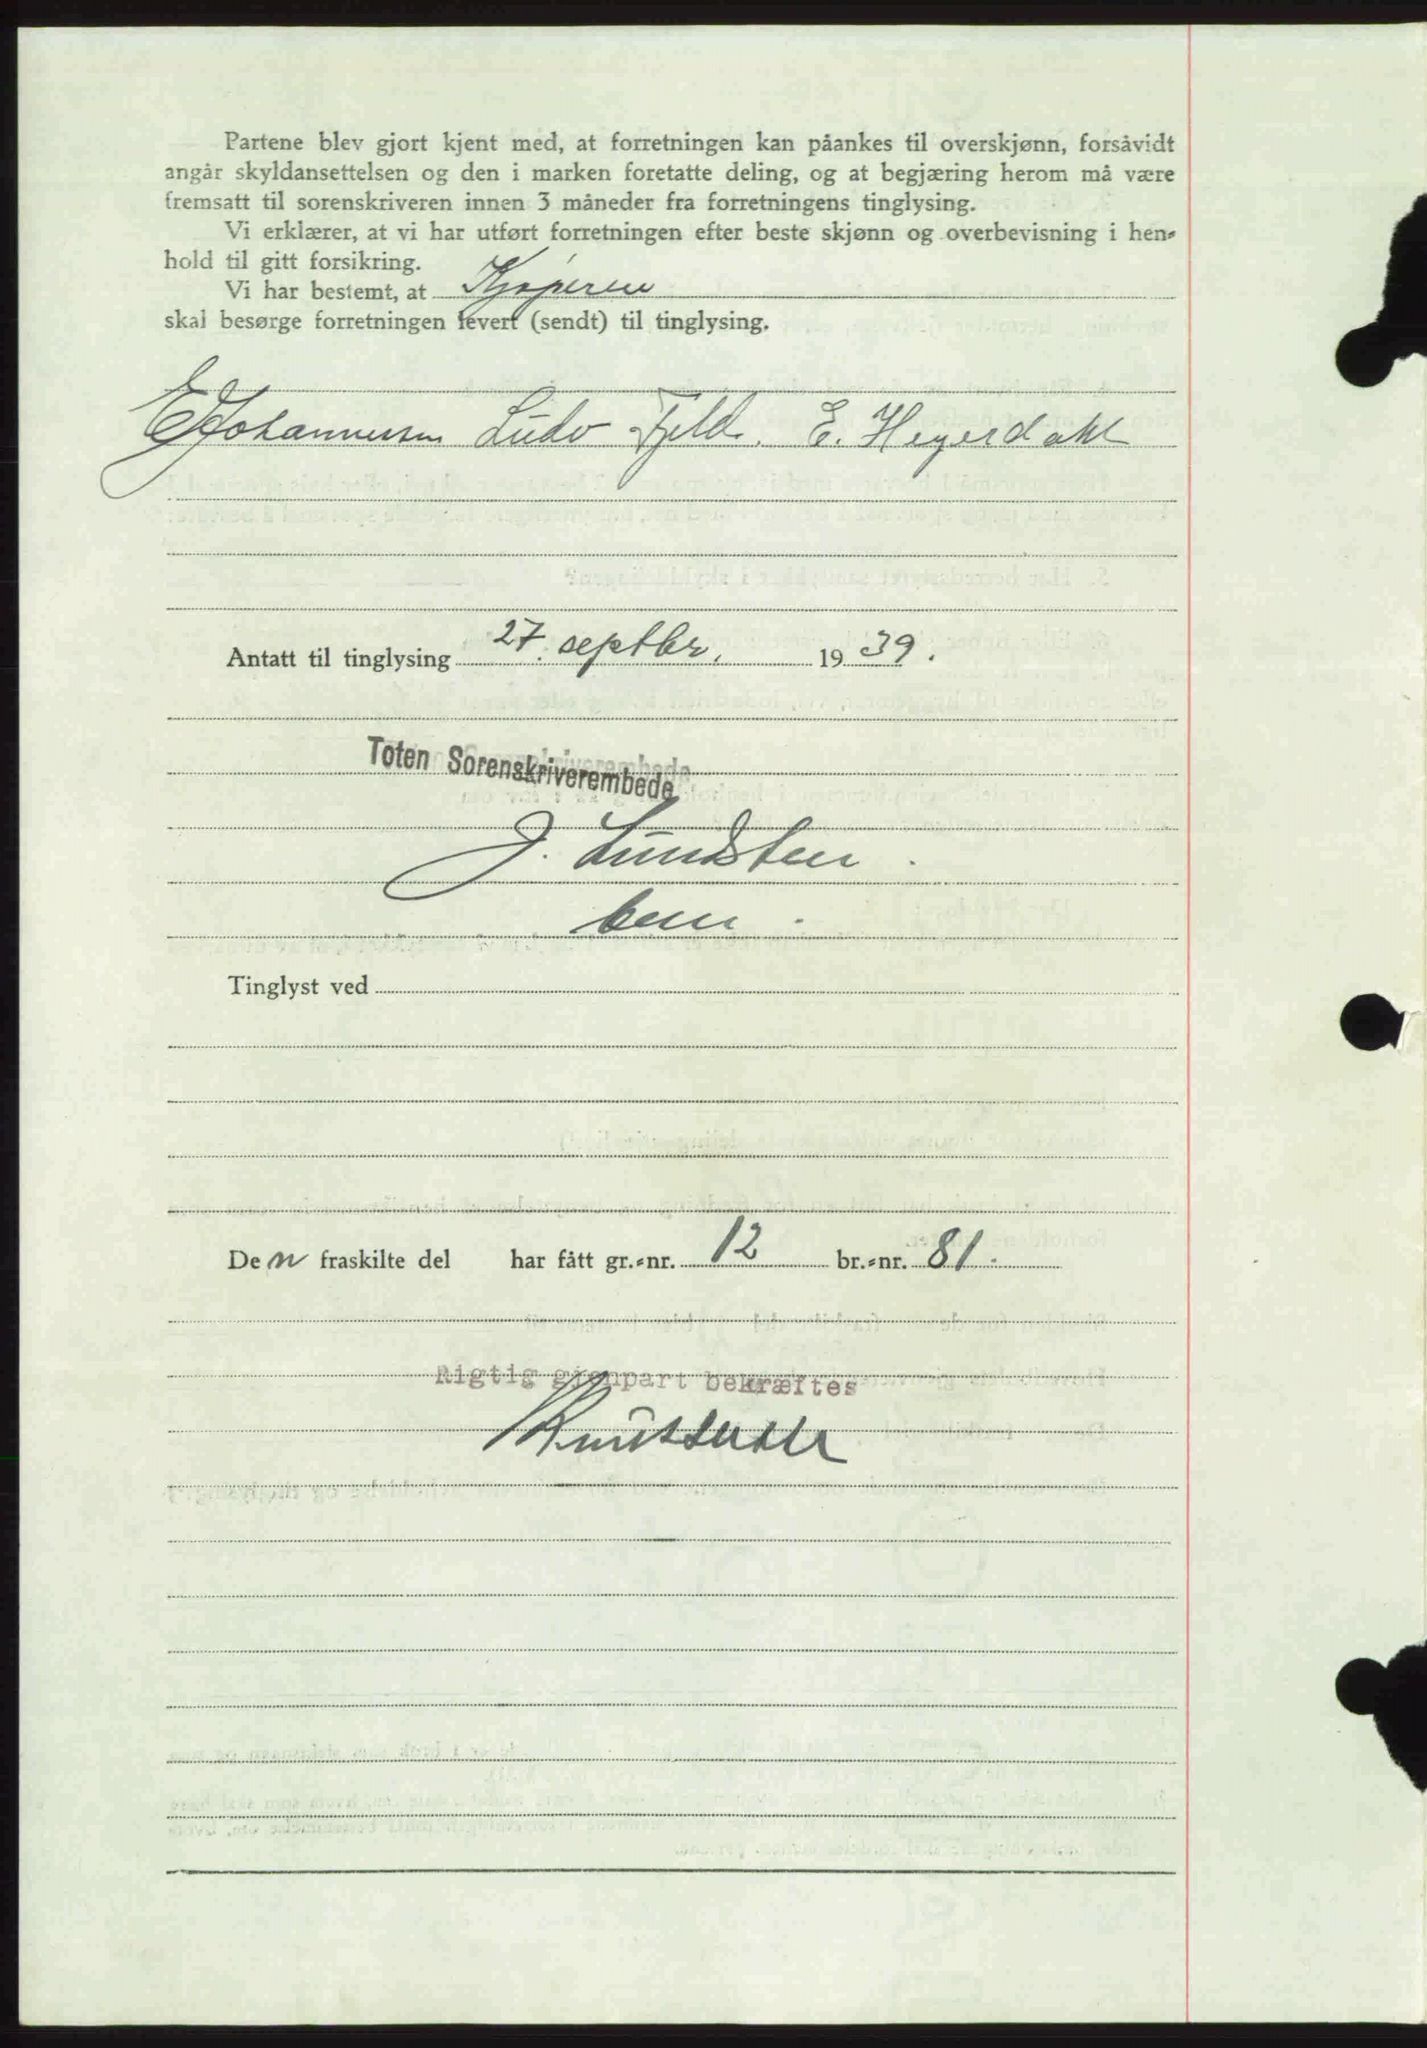 Partene blev gjort kjent med, at forretningen kan påankes til overskjønn, forsåvidt
angår skyldansettelsen og den i marken foretatte deling, og at begjæring herom må være
fremsatt til sorenskriveren innen 3 måneder fra forretningens tinglysing.
Vi erklærer, at vi har utført forretningen efter beste skjønn og overbevisning i hen-
hold til gitt forsikring.
Vi har bestemt, at Kjøperen
skal besørge forretningen levert (sendt) til tinglysing.
E Johannessen Ludv Fjeld. E. Heyerdahl
Antatt til tinglysing 27. septbr. 1939.
Toten Sorenskriverembede
J. Lundsten
Tinglyst ved
Den fraskilte del har fått gr.-nr. 12 br.-nr. 81.
Rigtig gjenpart bekræftes